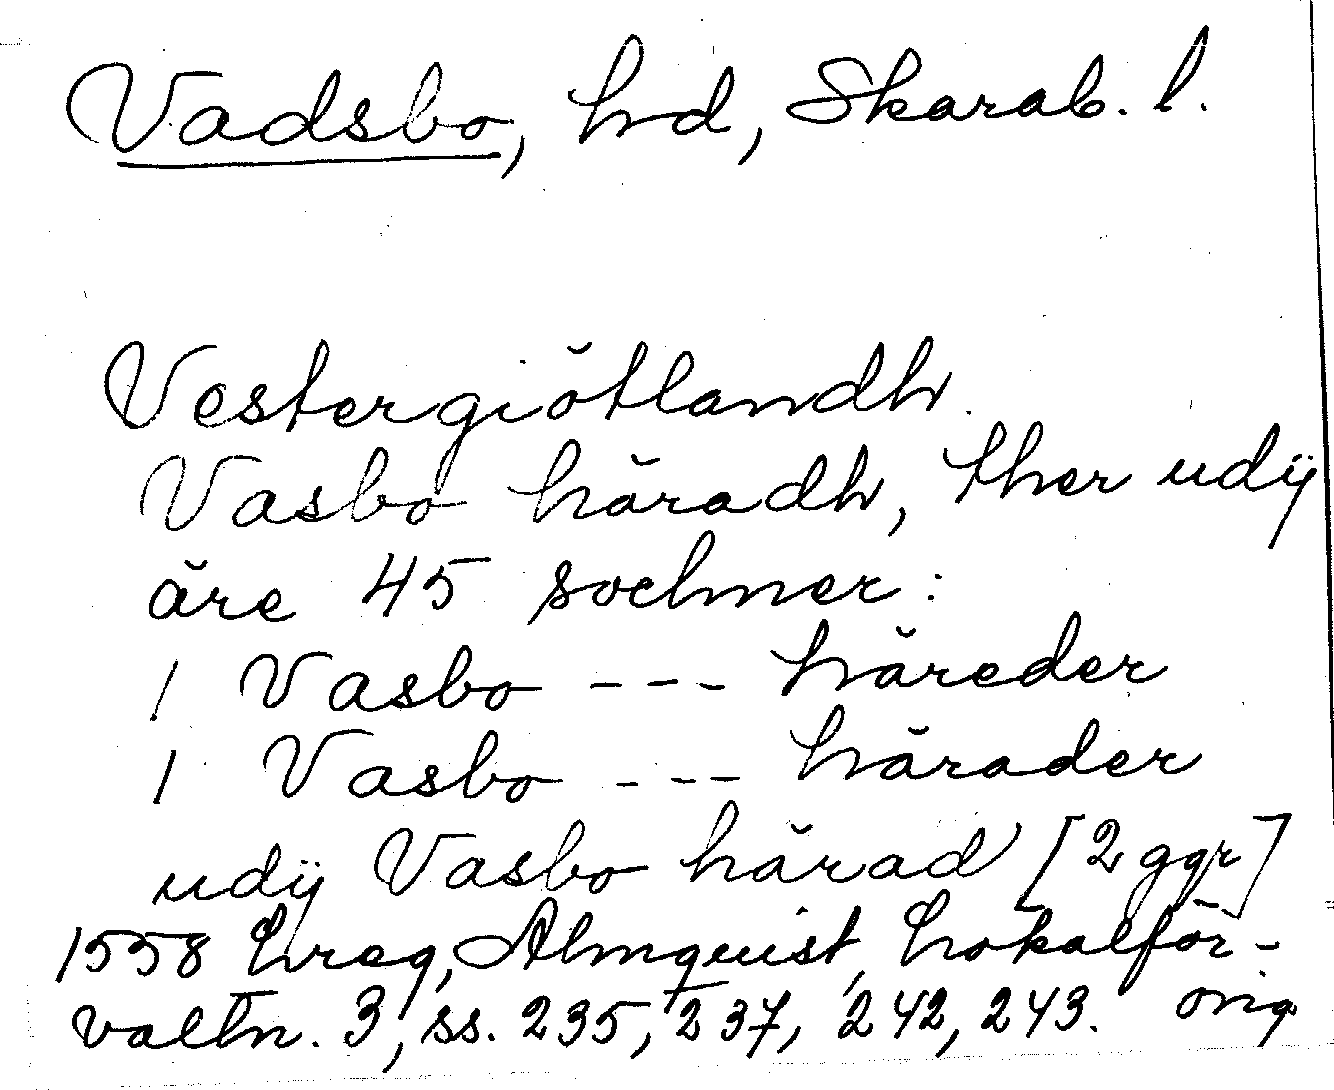 Vadsbo, hd, Skarab. l.
Vestergiötlandh
Vasbo häradh, ther udij
äre 45 sochner:
1 Vasbo --- häreder
1 Vasbo --- härader
udij Vasbo härad [2 ggr]
1558 Lreg, Almquist, Lokalför-
valtn. 3, ss. 235, 237, 242, 243. orig.